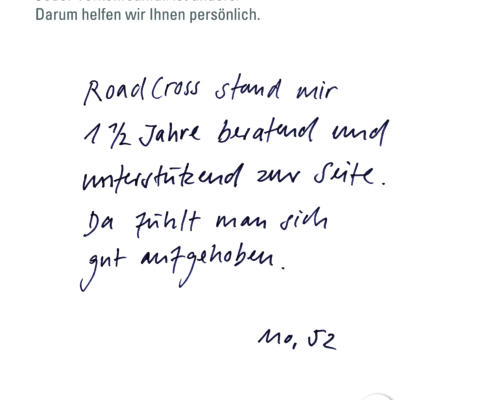 Darum helfen wir Ihnen persönlich.
RoadCross stand mir
1 1/2 Jahre beratend und
unterstützend zur Seite.
Da fühlt man sich
gut aufgehoben.
Mo, 52